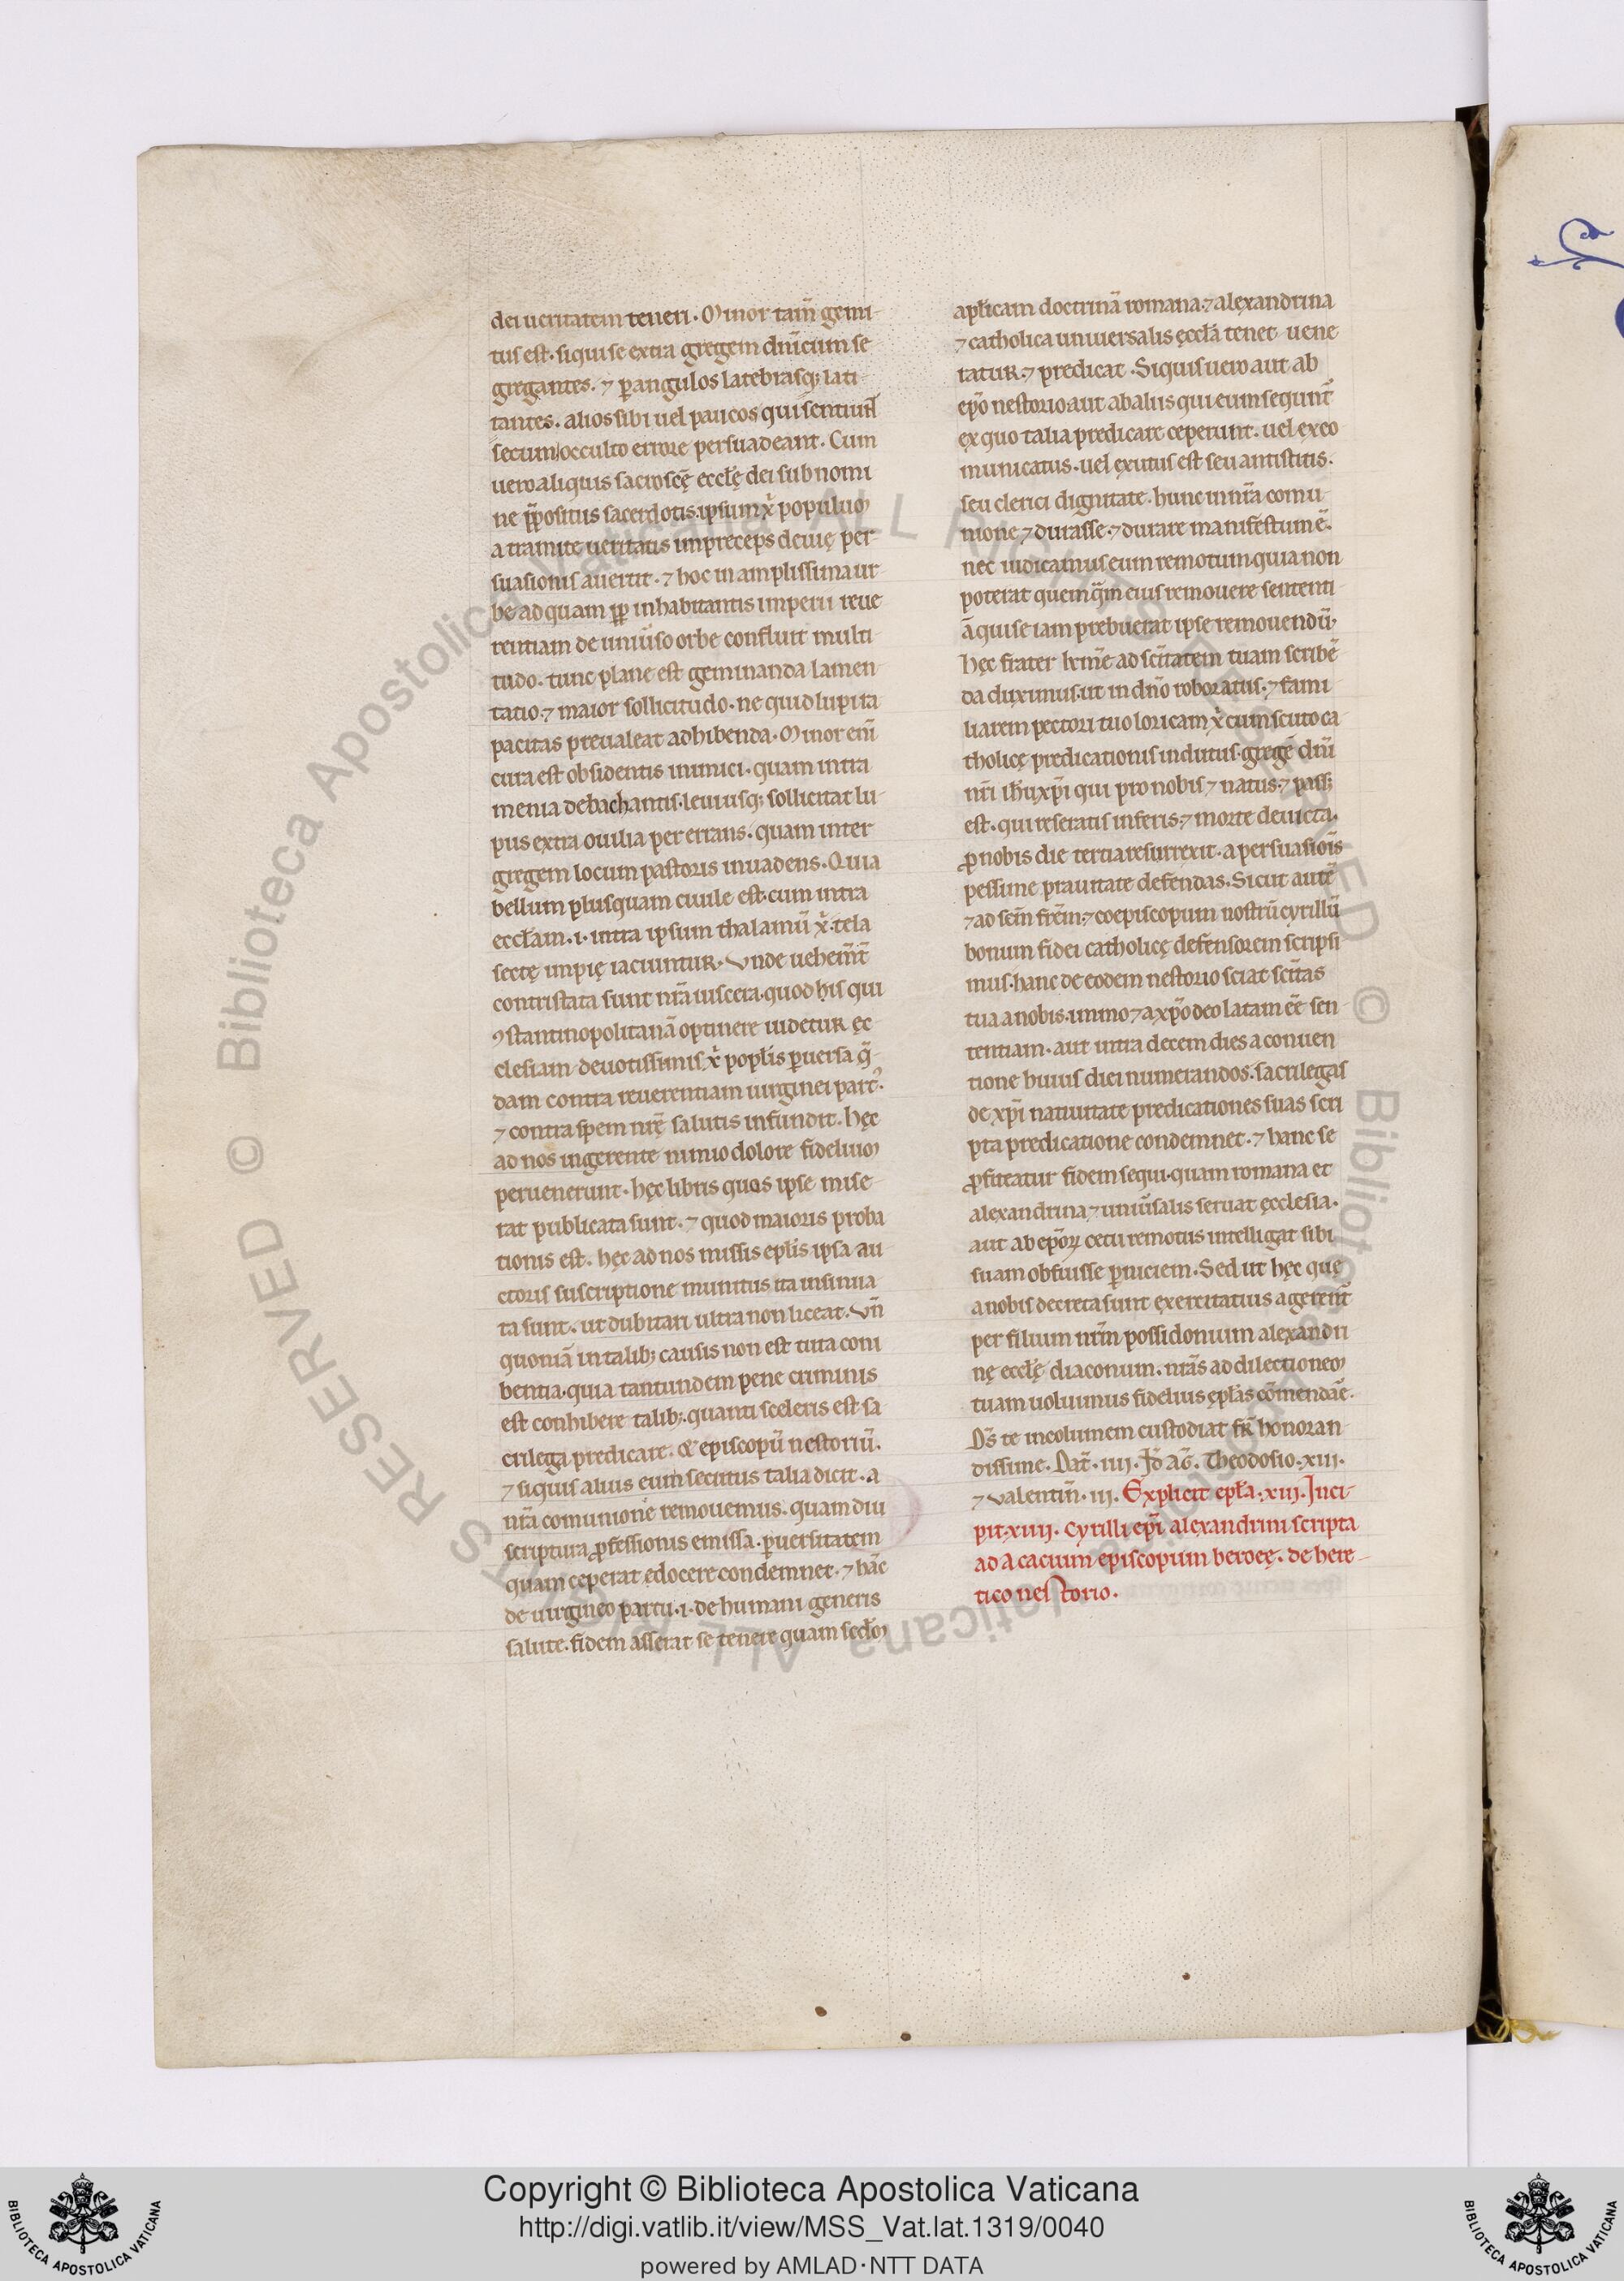 dei ueritatem teneri. Minor tam̄ gemi
tus est. siqui se extra gregem dn̄icum se
gregantes. ⁊ ꝑ angulos latebrasq; lati
tantes. alios sibi uel paucos qui sentiunt
secum occulto errore persuadeant. Cum
uero aliquis sacroscę̄ eccl̄ę dei sub nomi
ne p̄positus sacerdotis. ipsum x̄ populum
a tramite ueritatis impreceps deuię per
suasionis auertit. ⁊ hoc in amplissima ur
be ad quam pp̄ inhabitantis imperii reue
rentiam de uniūso orbe confluit multi
tudo. tunc plane est geminanda lamen
tatio. ⁊ maior sollicitudo. ne quid lupi ra
pacitas preualeat adhibenda. Minor eni̅
cura est obsidentis inimici. quam intra
menia debachantis. leuiusq; sollicitat lu
pus extra ouilia per errans. quam inter
gregem locum pastoris inuadens. Quia
bellum plusquam ciuile est. cum intra
eccl̄am. i. intra ipsum thalamū x̄. tela
sectę impię iaciuntur. Vnde uehem̄t̄
contristata sunt nr̄a uiscera. quod his qui
ꝯstantinopolitanā optinere uidetur ęc
clesiam deuotissimis x̄ popl̄is ꝑuersa q̄
dam contra reuerentiam uirginei part᾽.
⁊ contra spem nr̄ę salutis infundit. hęc
ad nos ingerente nimio dolore fidelium
peruenerunt. hęc libris quos ipse mise
rat publicata sunt. ⁊ quod maioris proba
tionis est. hęc ad nos missis epl̄is ipsa au
ctoris suscriptione munitus ita insinua
ta sunt. ut dubitari ultra non liceat. Vn̄
quoniā in talib; causis non est tuta coni
bentia. quia tantundem pene criminis
est conhibere talib;. quanti sceleris est sa
crilega predicare. & episcopū nestoriū.
⁊ siquis alius eum secutus talia dicit. a
nr̄a comunione remouemus. quam diu
scriptura ꝓfessionis emissa. ꝑuersitatem
quam ceperat edocere condemnet. ⁊ hāc
de uirgineo partu. i. de humani generis
salute. fidem asserat se tenere quam scd̄m
apl̄icam doctrinā romana. ⁊ alęxandrina
⁊ catholica uniuersalis ęccl̄a tenet uene
ratur. ⁊ predicat. Siquis uero aut ab
ep̄o nestorio aut ab aliis qui eum sequnt᷑
ęx quo talia predicare ceperunt. uel ęxco
municatus. uel ęxutus est seu antistitis.
seu clerici dignitate. hunc in nr̄a comu
nione ⁊ durasse. ⁊ durare manifestum ē.
nec iudicamus eum remotum quia non
poterat quemq̄m eius remouere sententi
ā qui se iam prebuerat ipse remouendū.
hęc frater kr̄me ad scīatem tuam scribē
da duximus. ut in dn̄o roboratus. ⁊ fami
liarem pectori tuo loricam x̄ cum scuto ca
tholicę predicationis indutus. gregē dn̄i
nr̄i ih̄u xp̄i qui pro nobis ⁊ natus. ⁊ pass;
est. qui reseratis inferis. ⁊ morte deuicta.
ꝓ nobis die tertia resurrexit. a persuasiōis
pessime prauitate defendas. Sicut autē
⁊ ad scm̄ frēm. ⁊ coepiscopum nostrū cyrillū
bonum fidei catholicę defensorem scripsi
mus. hanc de eodem nestorio sciat scītas
tua a nobis. immo ⁊ a xp̄o deo latam eē sen
tentiam. aut intra decem dies a conuen
tione huius diei numerandos. sacrilegas
de xp̄i natiuitate predicationes suas scri
pta predicatione condemnet. ⁊ hanc se
ꝓfiteatur fidem sequi. quam romana et
alexandrina ⁊ uniūsalis seruat ęcclesia.
aut ab ep̄orꝝ cetu remotus intelligat sibi
suam obfuisse ꝑniciem. Sed ut hęc que
a nobis decreta sunt ęxercitatius agerent᷑
per filium nr̄m possidonium alęxandri
nę eccl̄ę diaconum. nr̄as ad dilectionem
tuam uoluimus fidelius ępl̄as cōmendāe.
Ds̄ te incolumem custodiat fr̄k̄ honoran
dissime. Dat̄. iiii. Id̄ aḡ. Theodosio. xiii.
⁊ Valentin̄. iii. Explicit epl̄a. xiii. Inci
pit. xiiii. Cyrilli ep̄i alęxandrini scripta
ad Acacium episcopum beroeę. de here
tico nestorio.
© Biblioteca Apostolica Vaticana ALL RIGHTS RESERVED
© Biblioteca Apostolica Vaticana ALL RIGHTS RESERVED
Copyright © Biblioteca Apostolica Vaticana
http://digi.vatlib.it/view/MSS_Vat.lat.1319/0040
powered by AMLAD·NTT DATA
BIBLIOTECA APOSTOLICA VATICANA
BIBLIOTECA APOSTOLICA VATICANA